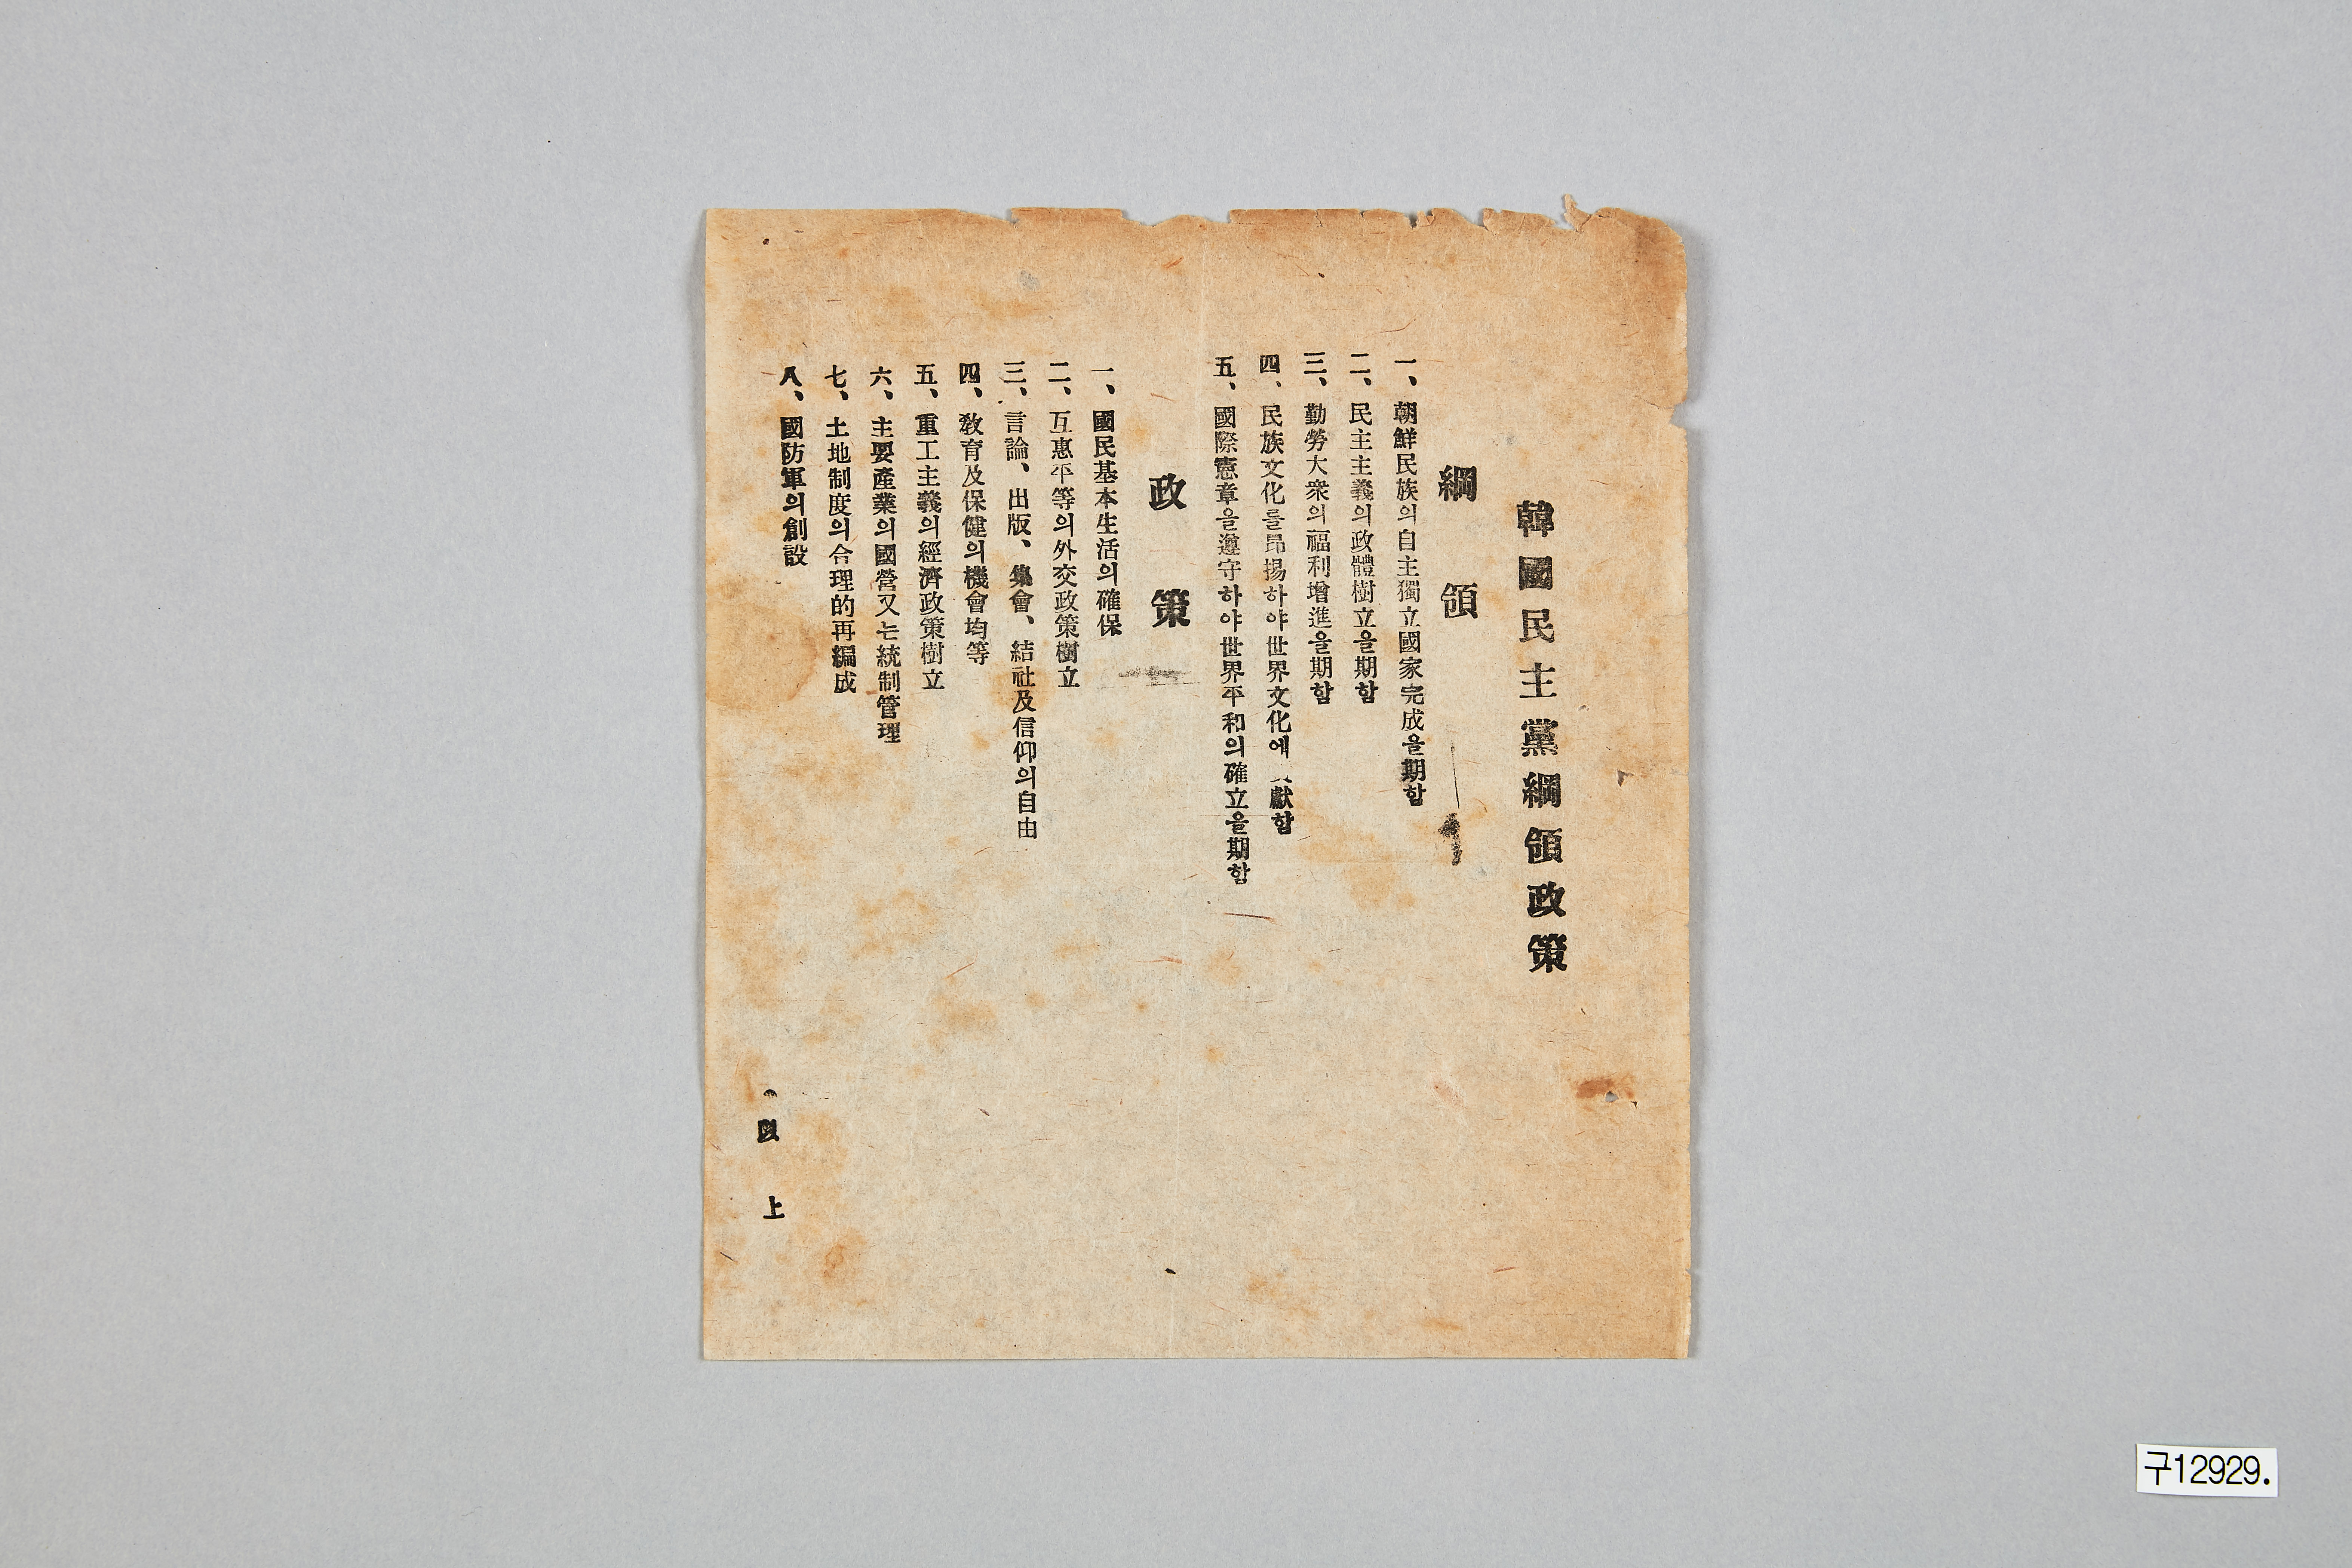 韓國民主黨綱領政策
綱領
一、朝鮮民族의自主獨立國家完成을期함
二、民主主義의政體樹立을期함
三、勤勞大衆의福利增進을期함
四、民族文化를昻揚하야世界文化에 獻함
五、國際憲章을遵守하야世界平和의確立을期함
政策
一、國民基本生活의確保
二、互惠平等의外交政策樹立
三、言論、出版、集會、結社及信仰의自由
四、敎育及保健의機會均等
五、重工主義의經濟政策樹立
六、主要產業의國營又는統制管理
七、土地制度의合理的再編成
八、國防軍의創設
以上
구12929.